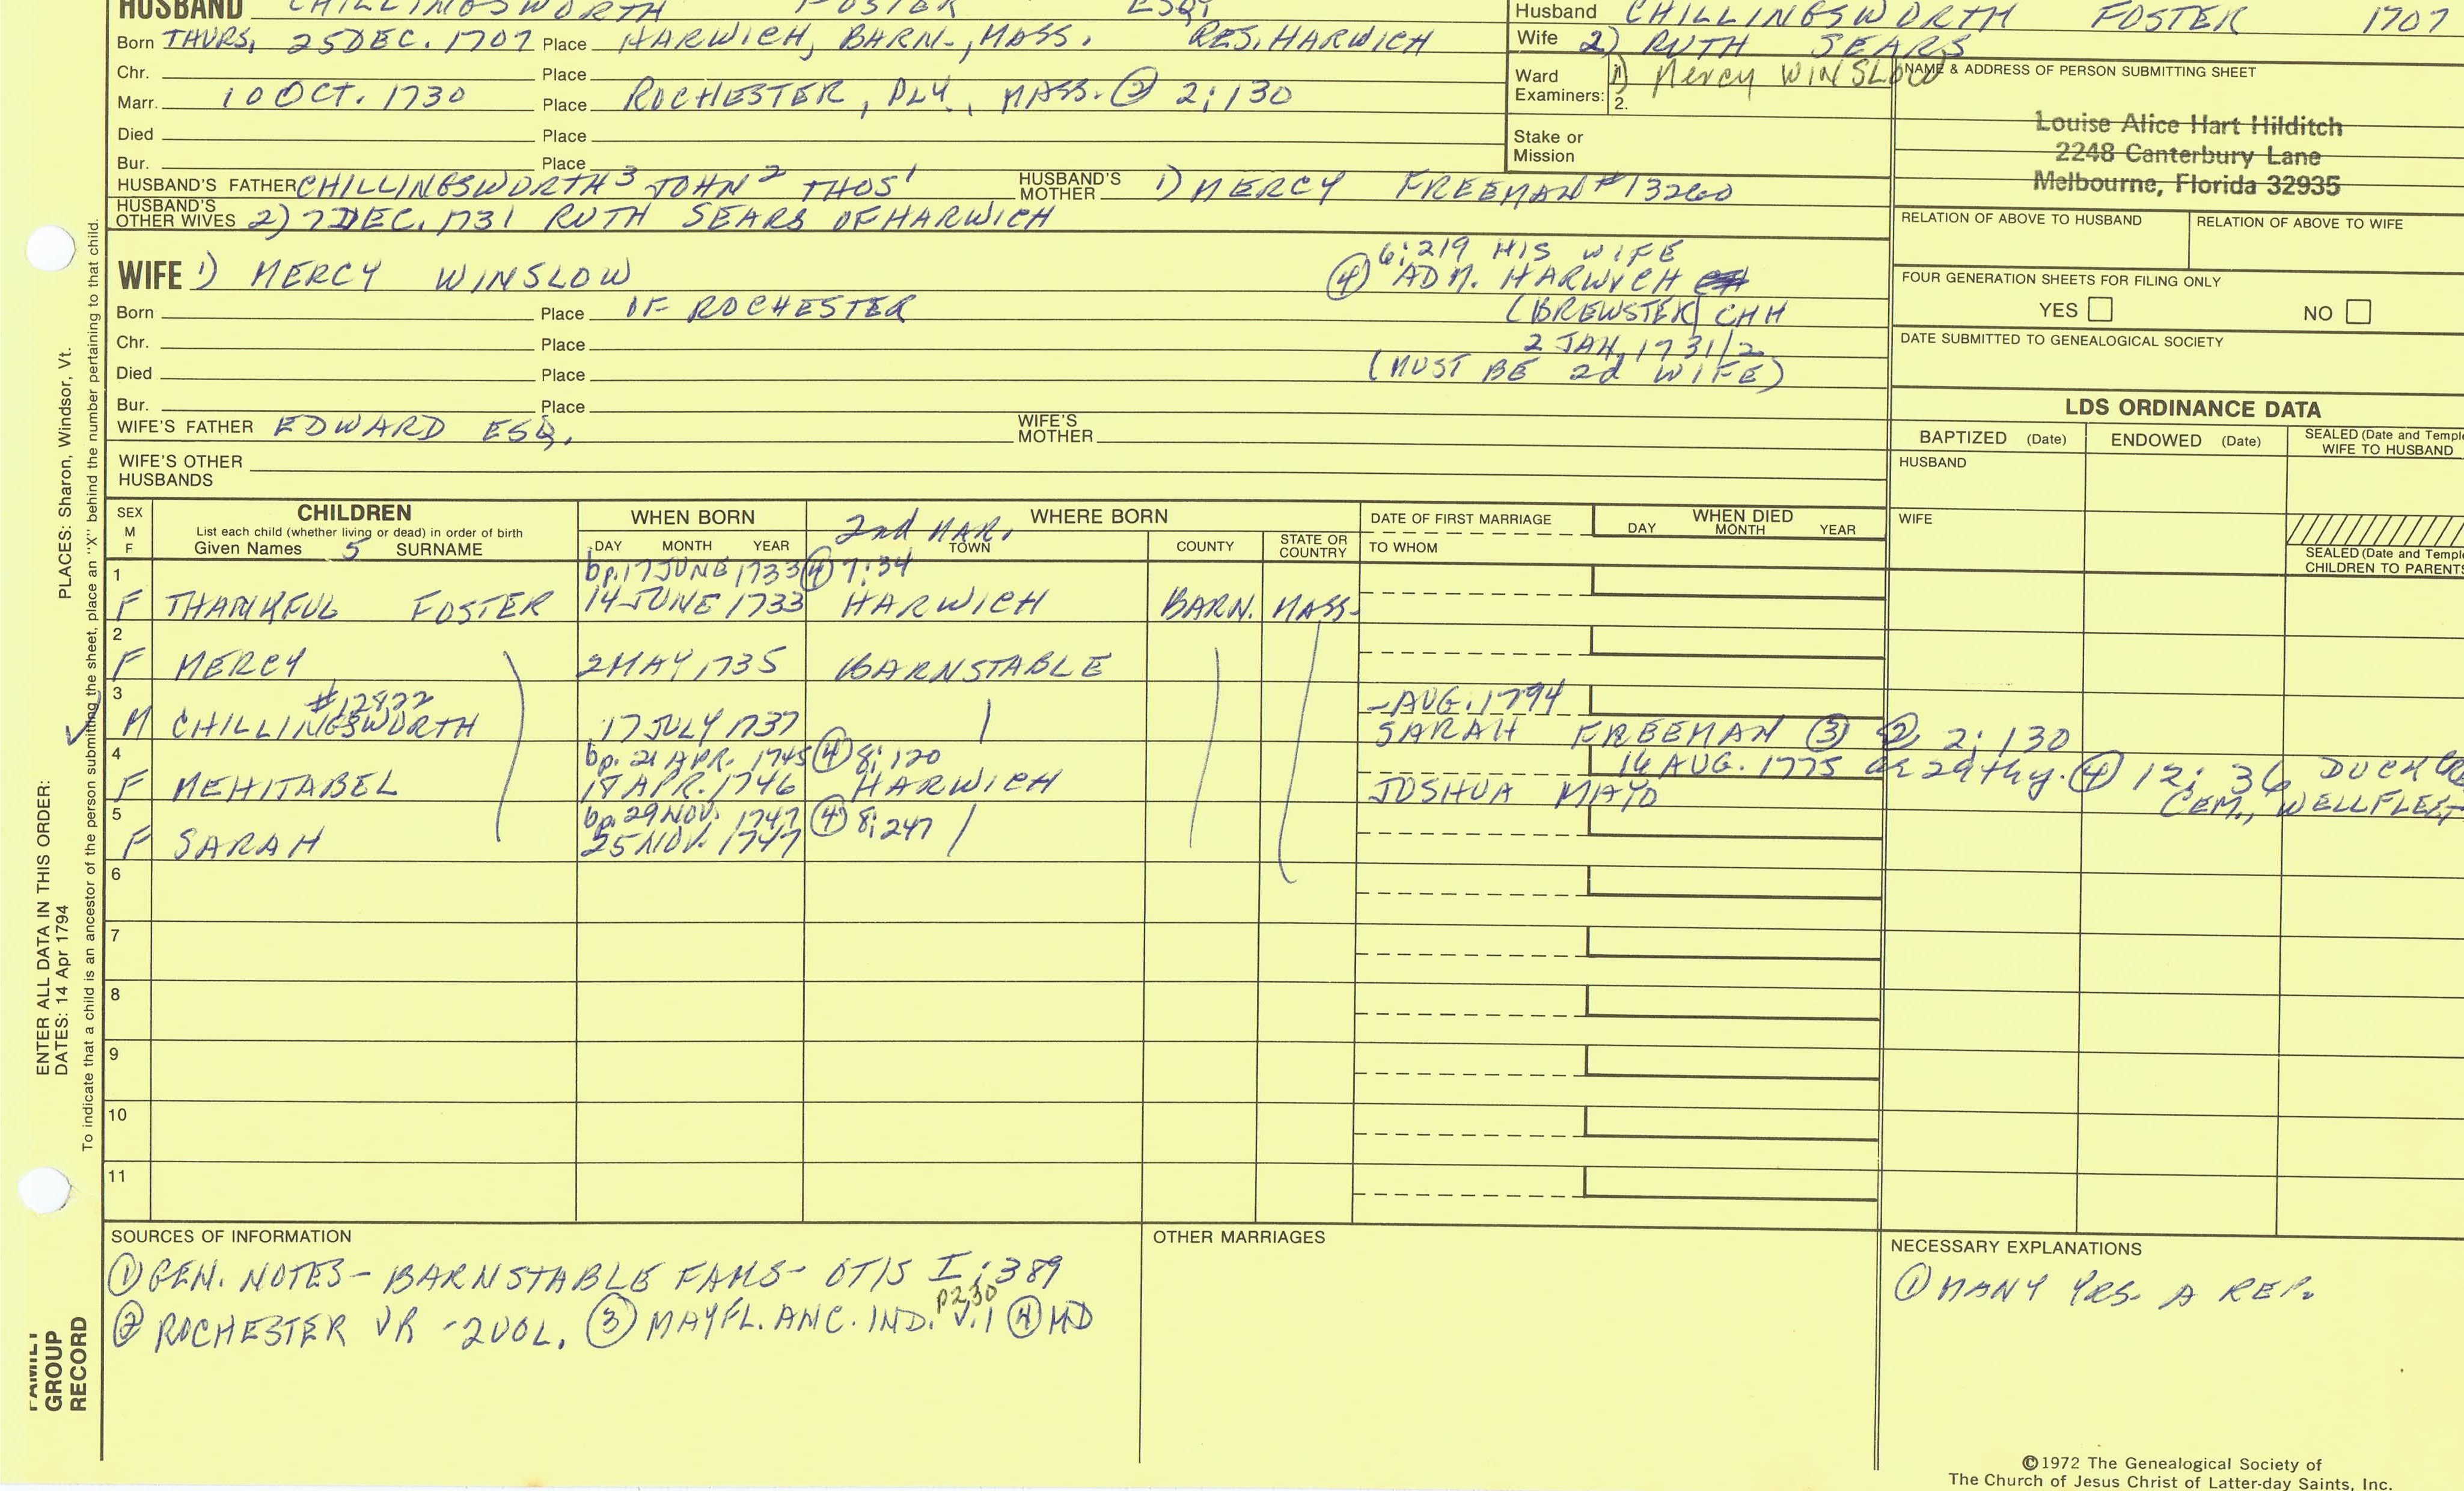 HUSBAND CHILLINGSWORTH FOSTER ESQ.
Born THURS. 25 DEC. 1707 Place HARWICH, BARN., MASS. RES. HARWICH
Chr. Place
Marr. 10 OCT. 1730 Place ROCHESTER, PLY., MASS. ② 2:130
Died Place
Bur. Place
HUSBAND'S FATHER CHILLINGSWORTH³ JOHN² THOS¹ HUSBAND'S MOTHER 1) MERCY FREEMAN #13260
HUSBAND'S OTHER WIVES 2) 7 DEC. 1731 RUTH SEARS OF HARWICH
Husband CHILLINGSWORTH FOSTER 1707
Wife 2) RUTH SEARS
1) Mercy WINSLOW
Ward Examiners: 1.
2.
Stake or Mission
NAME & ADDRESS OF PERSON SUBMITTING SHEET
Louise Alice Hart Hilditch
2248 Canterbury Lane
Melbourne, Florida 32935
RELATION OF ABOVE TO HUSBAND RELATION OF ABOVE TO WIFE
FOUR GENERATION SHEETS FOR FILING ONLY
YES NO
DATE SUBMITTED TO GENEALOGICAL SOCIETY
WIFE 1) MERCY WINSLOW
Born Place OF ROCHESTER
Chr. Place
Died Place
Bur. Place
6:219 HIS WIFE
④ ADM. HARWICH
(BREWSTER) CHH
2 JAN, 1731/2
(MUST BE 2d WIFE)
WIFE'S FATHER EDWARD ESQ. WIFE'S MOTHER
WIFE'S OTHER HUSBANDS
LDS ORDINANCE DATA
BAPTIZED (Date) ENDOWED (Date) SEALED (Date and Templ
WIFE TO HUSBAND
HUSBAND
WIFE
SEALED (Date and Templ
CHILDREN TO PARENTS
SEX M F
CHILDREN
List each child (whether living or dead) in order of birth
Given Names 5 SURNAME
WHEN BORN
DAY MONTH YEAR
2nd MAR. WHERE BORN
TOWN COUNTY STATE OR COUNTRY
DATE OF FIRST MARRIAGE
TO WHOM
WHEN DIED
DAY MONTH YEAR
1 bp. 17 JUNE 1733 ④ 7:34
F THANKFUL FOSTER 14 JUNE 1733 HARWICH BARN. MASS.
2
F MERCY 2 MAY 1735 BARNSTABLE
3 #12822 - AUG. 1794
M CHILLINGSWORTH 17 JULY 1737 SARAH FREEMAN ③ ② 2:130
4 bp. 21 APR. 1745 ④ 8:120 16 AUG. 1775 29thy. ④ 12:36 DUCK
F MEHITABEL 18 APR. 1746 HARWICH JOSHUA MAYO CEM., WELLFLEET
5 bp. 29 NOV. 1747 ④ 8:247
F SARAH 25 NOV. 1747
6
7
8
9
10
11
SOURCES OF INFORMATION
① GEN. NOTES - BARNSTABLE FAMS - OTIS I:389
p230
② ROCHESTER VR - 2 VOL. ③ MAYFL. ANC. IND. V.1 ④ MD
OTHER MARRIAGES
NECESSARY EXPLANATIONS
① MANY YRS. A REP.
©1972 The Genealogical Society of
The Church of Jesus Christ of Latter-day Saints, Inc.
ENTER ALL DATA IN THIS ORDER:
DATES: 14 Apr 1794 PLACES: Sharon, Windsor, Vt.
To indicate that a child is an ancestor of the person submitting the sheet, place an "X" behind the number pertaining to that child.
FAMILY
GROUP
RECORD